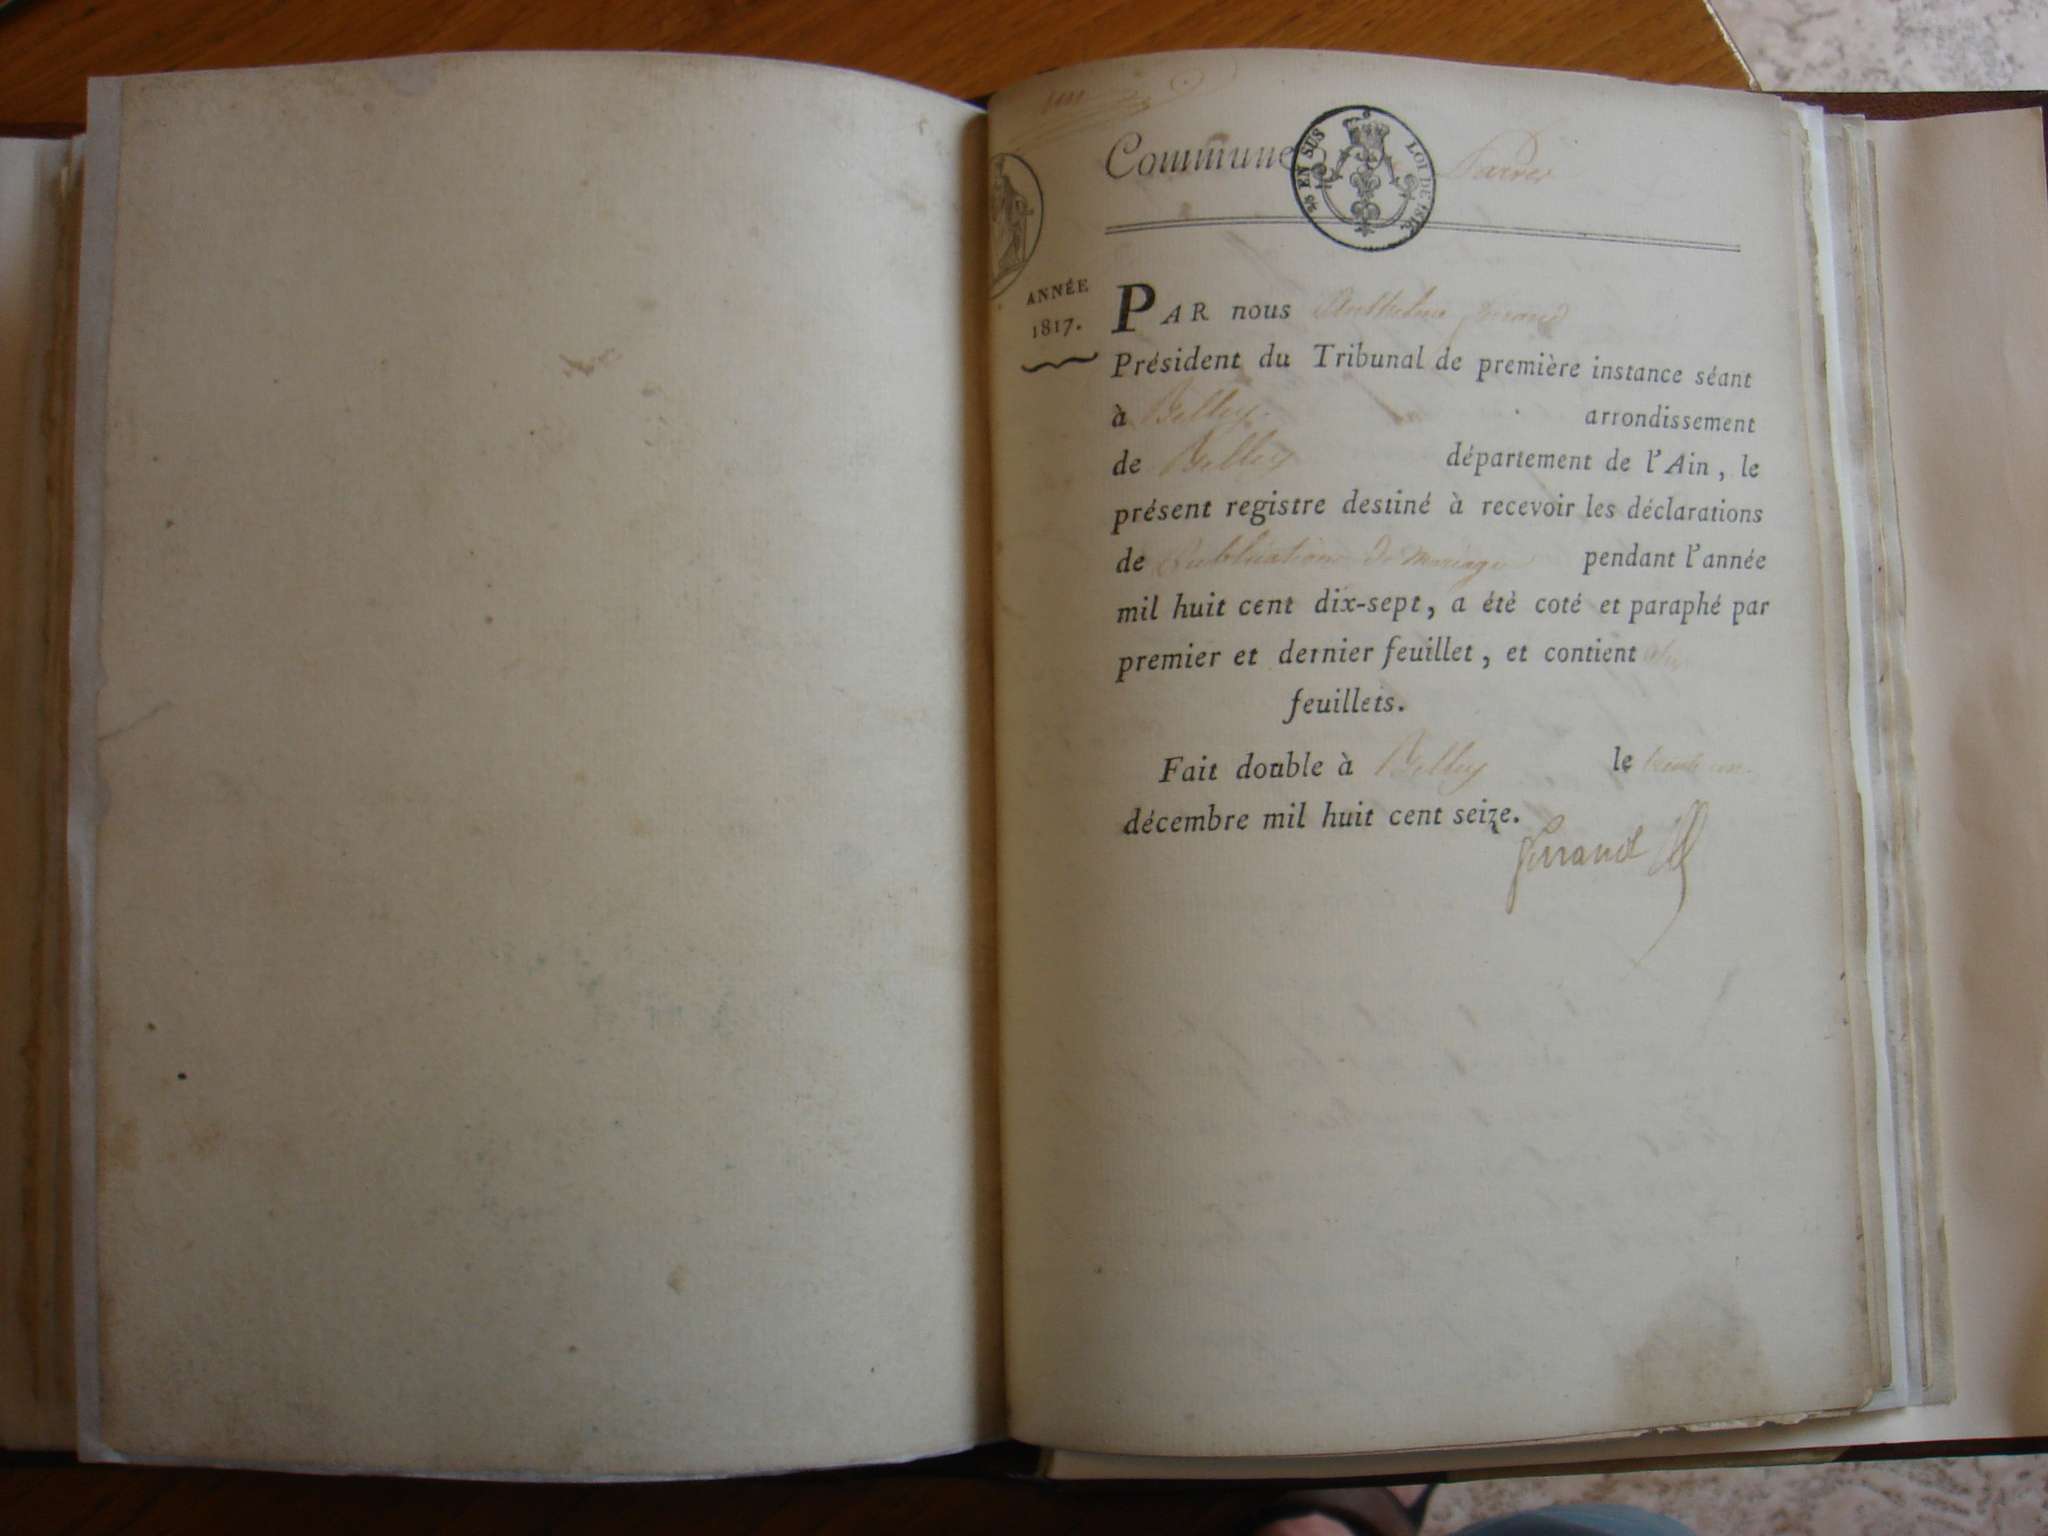 un
Commune Parves
25 EN SUS LOI DE 1816
ANNÉE
1817.
PAR nous Anthelme Girraud
Président du Tribunal de première instance séant
à Belley. arrondissement
de Belley département de l'Ain, le
présent registre destiné à recevoir les déclarations
de Publications de Mariage pendant l'année
mil huit cent dix-sept, a été coté et paraphé par
premier et dernier feuillet, et contient
feuillets.
Fait double à Belley le trente un.
décembre mil huit cent seize.
Girraud